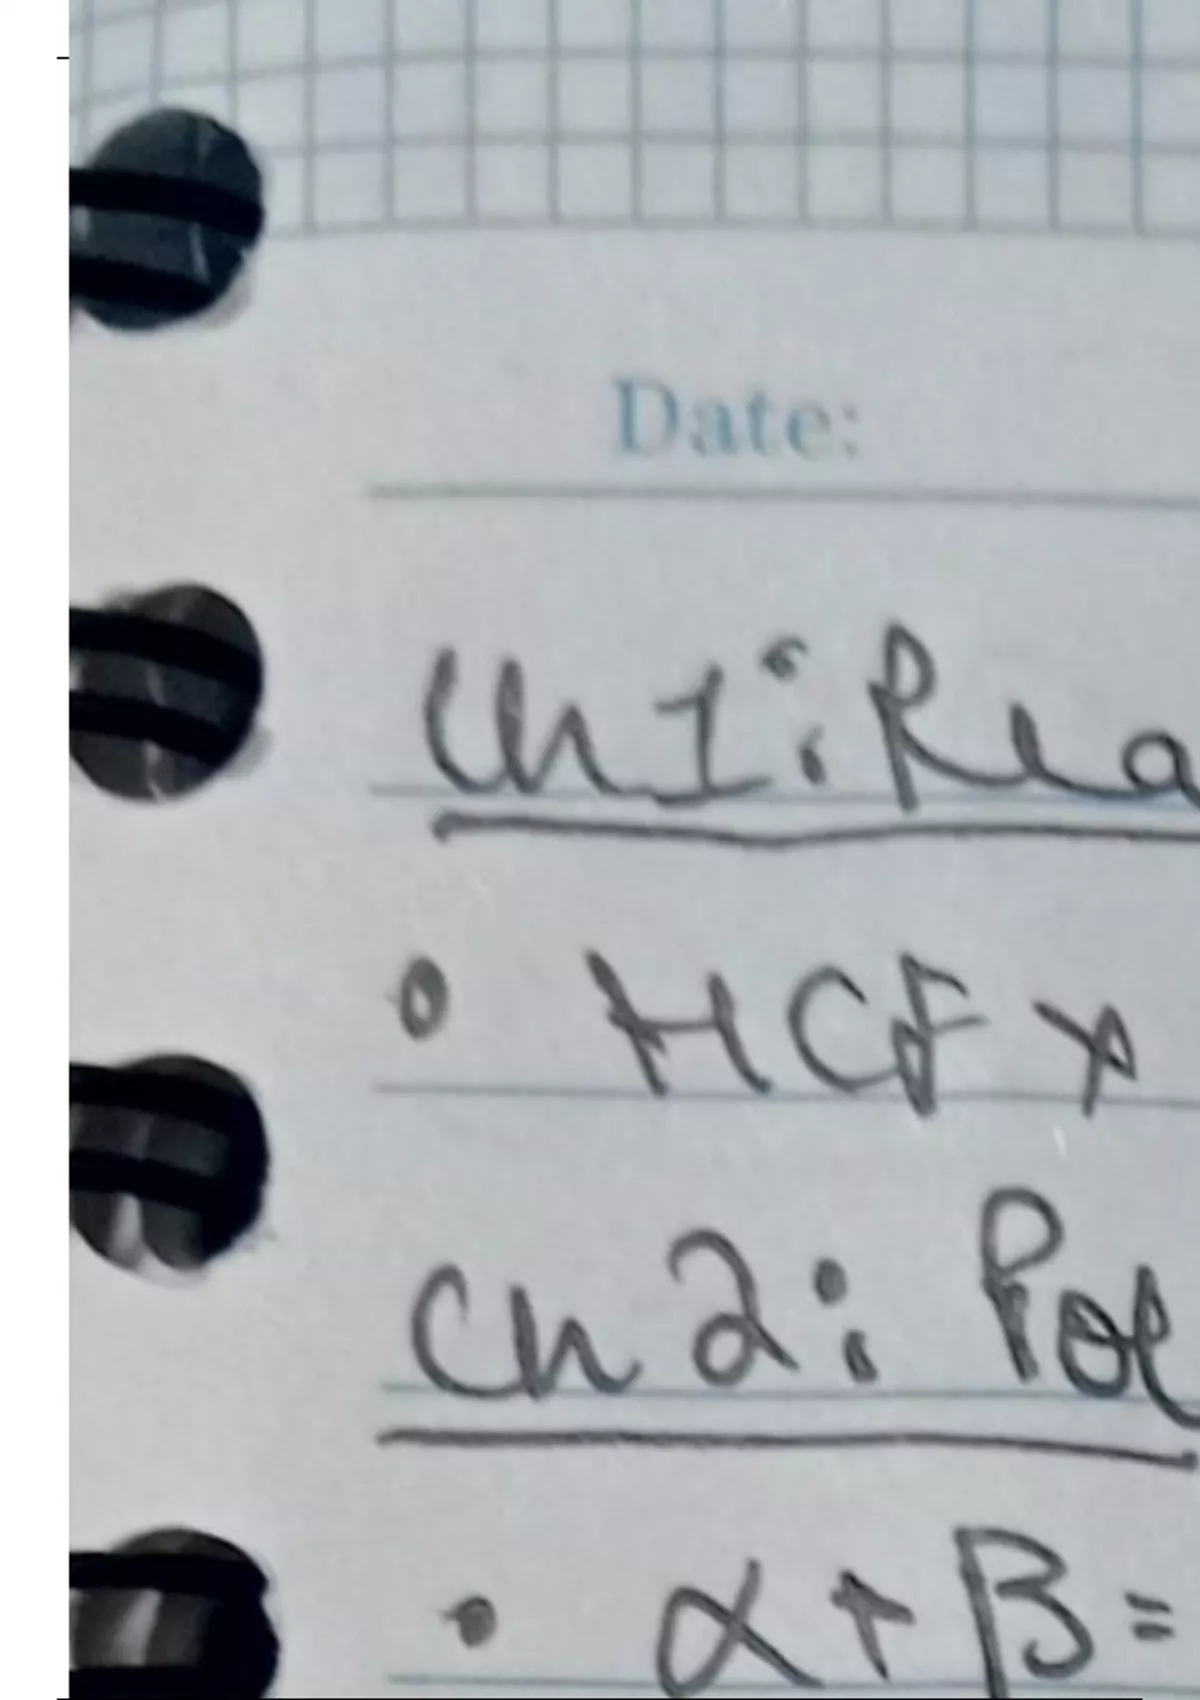 Date:
Ch 1: Rea
• HCF ×
Ch 2: Pol
• α + β =